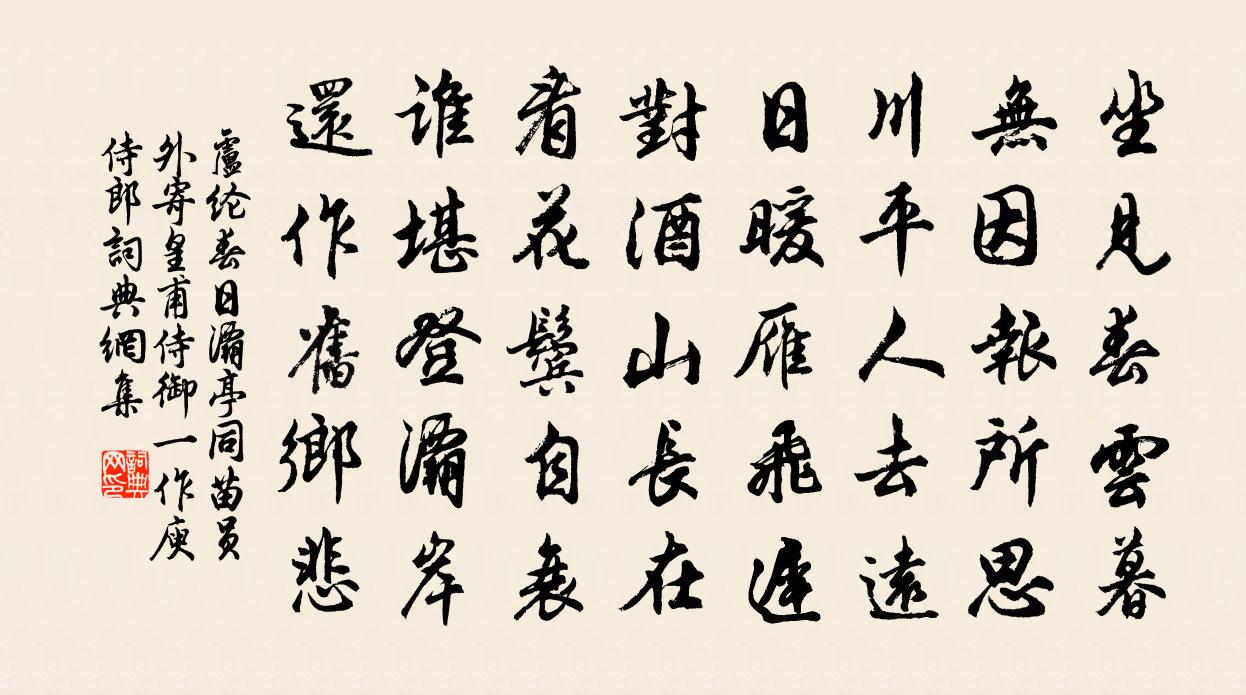 坐見春雲暮
無因報所思
川平人去遠
日暖雁飛遲
對酒山長在
看花鬢自衰
誰堪登灞岸
還作舊鄉悲
盧纶春日灞亭同苗员
外寄皇甫侍御一作庾
侍郎詞典網集
詞典网印